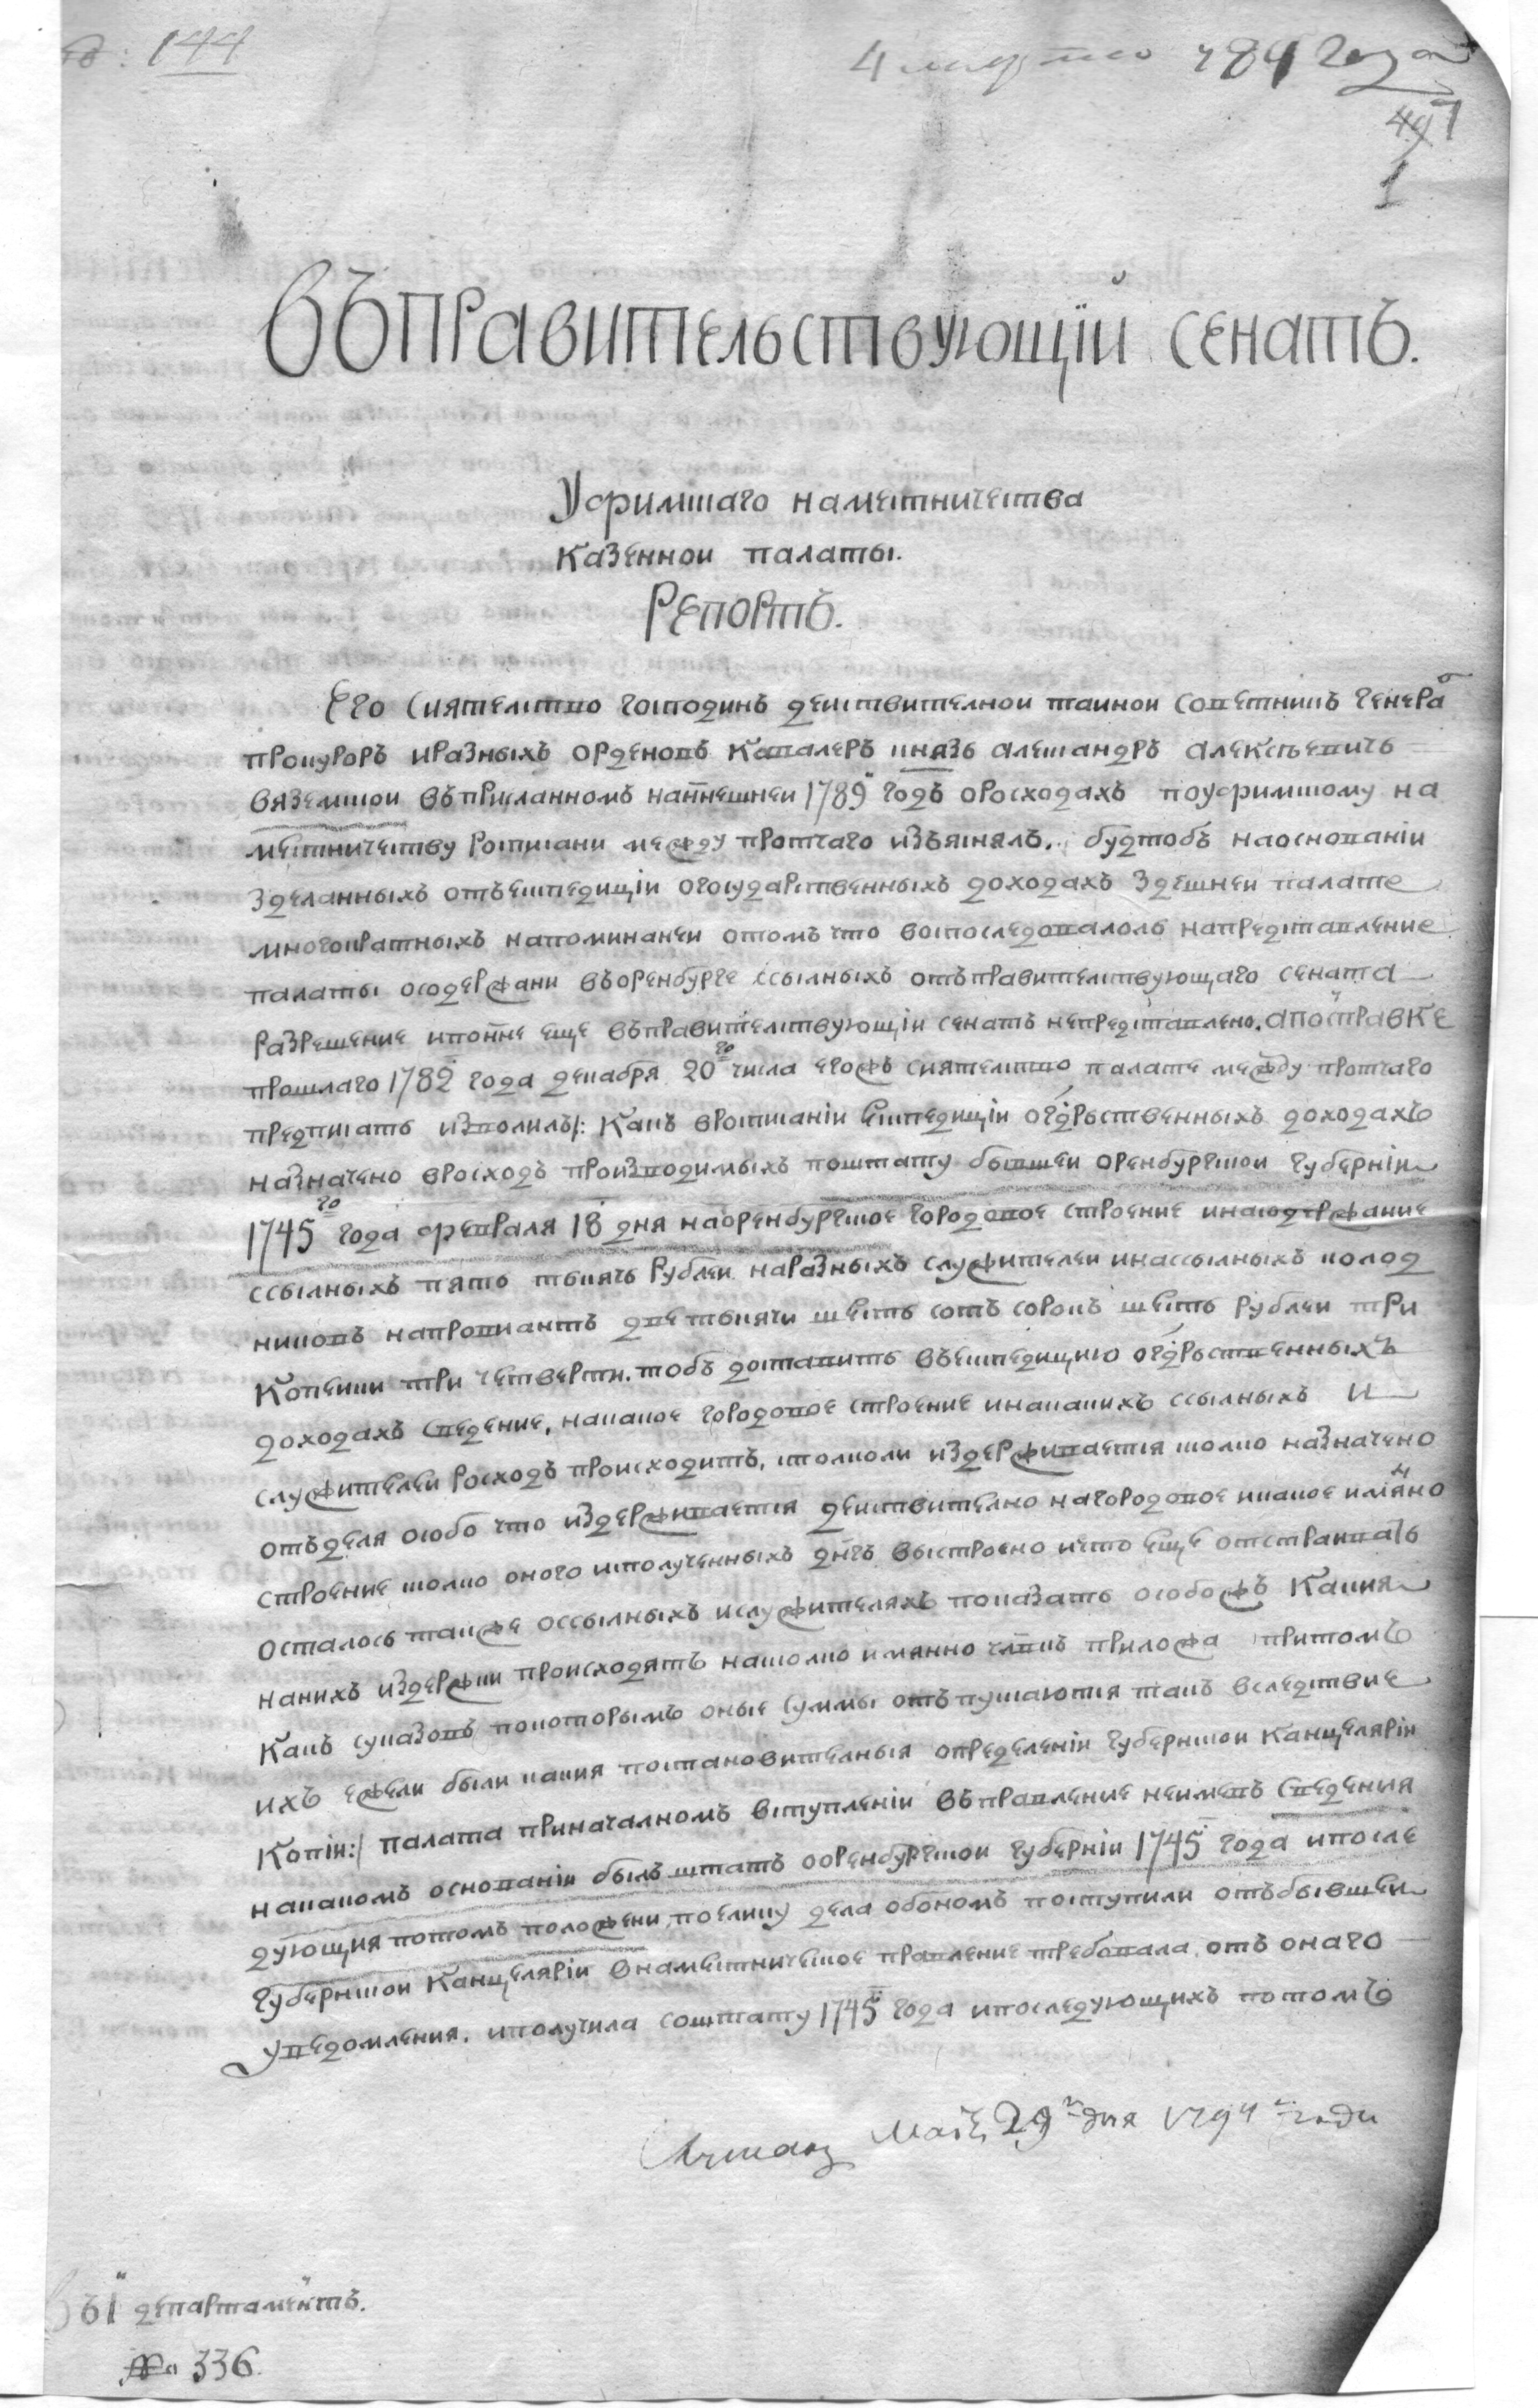 144
4 марта 784 года
1
Въ Правительствующій Сенатъ.
Уфимскаго наместничества
казеннои палаты.
Репортъ.
Его сиятелство господинъ деиствителнои таинои советникъ генерал
прокуроръ и разныхъ орденовъ кавалеръ князь александръ алексеевичь
вяземскои въ присланномъ на ннешнеи 1783 годъ о росходахъ по уфимскому на
местничеству росписани между протчаго изъяснялъ, будтобъ на основаніи
зделанныхъ отъ експедицiи о государственныхъ доходахъ здешнеи палате
многократныхъ напоминанеи о томъ что воспоследовалоль на представление
палаты о содержани въ оренбурге ссылныхъ отъ правителствующаго сената
разрешение и понне еще въ правителствующiи сенатъ не представлено. а по справке
прошлаго 1782 года декабря 20го числа егожъ сиятелство палате между протчаго
предписать изволилъ /: какъ в росписаніи експедицiи о гдрьственныхъ доходахъ
назначено в росходъ производимыхъ по штату бывшеи оренбургскои губерніи
1745го года февраля 18 дня на оренбургское городовое строение и на содержание
ссылныхъ пять тысячь рублеи на разныхъ служителеи и на ссылныхъ колод
никовъ на провиантъ две тысячи шесть сотъ сорокъ шесть рублеи три
копеики три четверти. тобъ доставить въ експедицию о гдрьственныхъ
доходахъ сведение, на какое городовое строение и на какихъ ссылныхъ и
служителеи росходъ происходитъ, и столколи издерживается сколко назначено
отъделя особо что издерживается деиствително на городовое и какое имянно
строение сколко оного и с полученныхъ днгъ выстроено и что еще отстраивать
осталось также о ссылныхъ и служителяхъ показать особожъ какия
на нихъ издержки происходятъ на сколко имянно члвкъ приложа притомъ
какъ с указовъ по которымъ оные суммы отъпускаются такъ в следствие
ихъ ежели были какия постановителныя определеніи губернскои канцеляріи
копіи:/ палата при началномъ вступленіи въ правление не имевъ сведения
на какомъ основаніи былъ штатъ о оренбургскои губерніи 1745 года и после
дующия потомъ положени, поелику дела обономъ поступили отъ бывшеи
губернскои канцеляріи в наместническое правление требовала отъ онаго
уведомления. и получила со штату 1745 года и последующихъ потомъ
маія 29 дня 1794 года
въ 1 департаментъ.
№ 336.